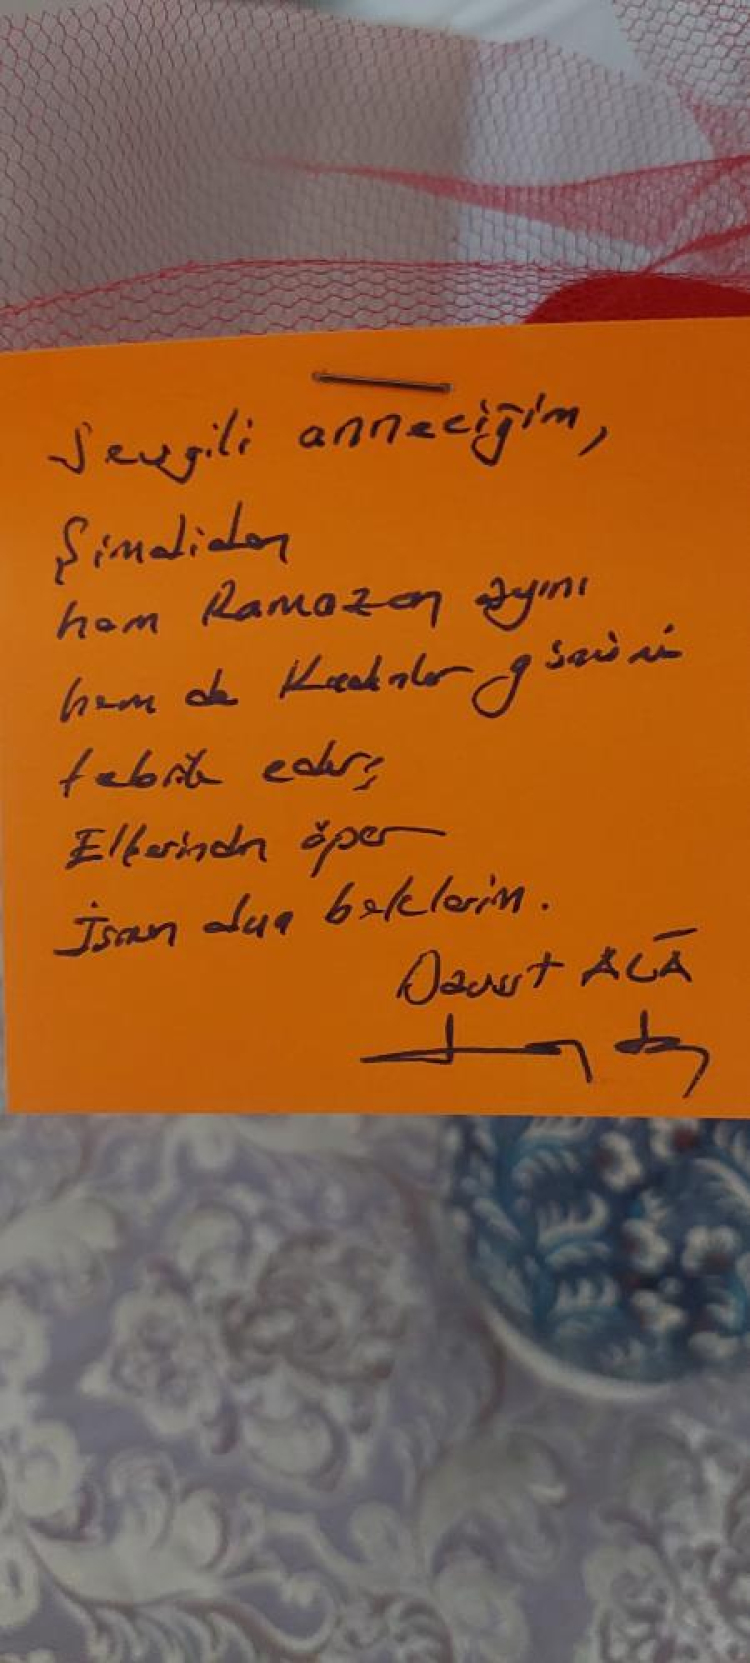 Sevgili anneciğim,
Şimdiden
hem Ramazan ayını
hem de Kadınlar gününü
tebrik eder;
Ellerinden öper
dua beklerim.
Davut ALÃ